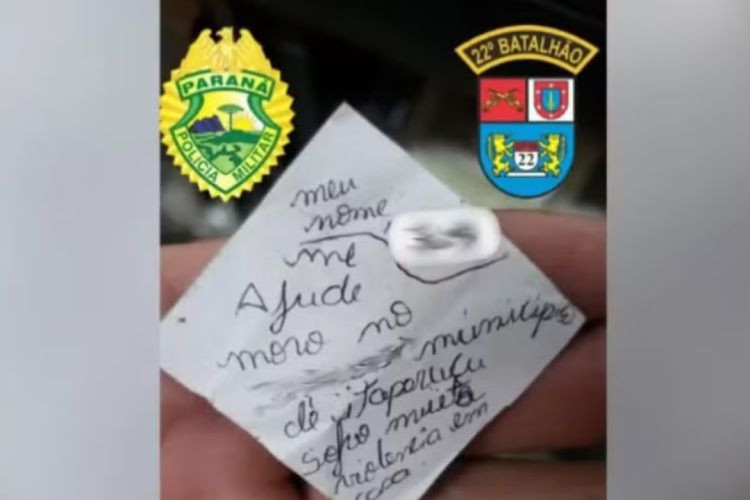 PARANÁ
POLÍCIA MILITAR
22º BATALHÃO
22
meu
nome
me
Ajude
moro no
município
de itaporucu
sofro muita
violencia em
casa.